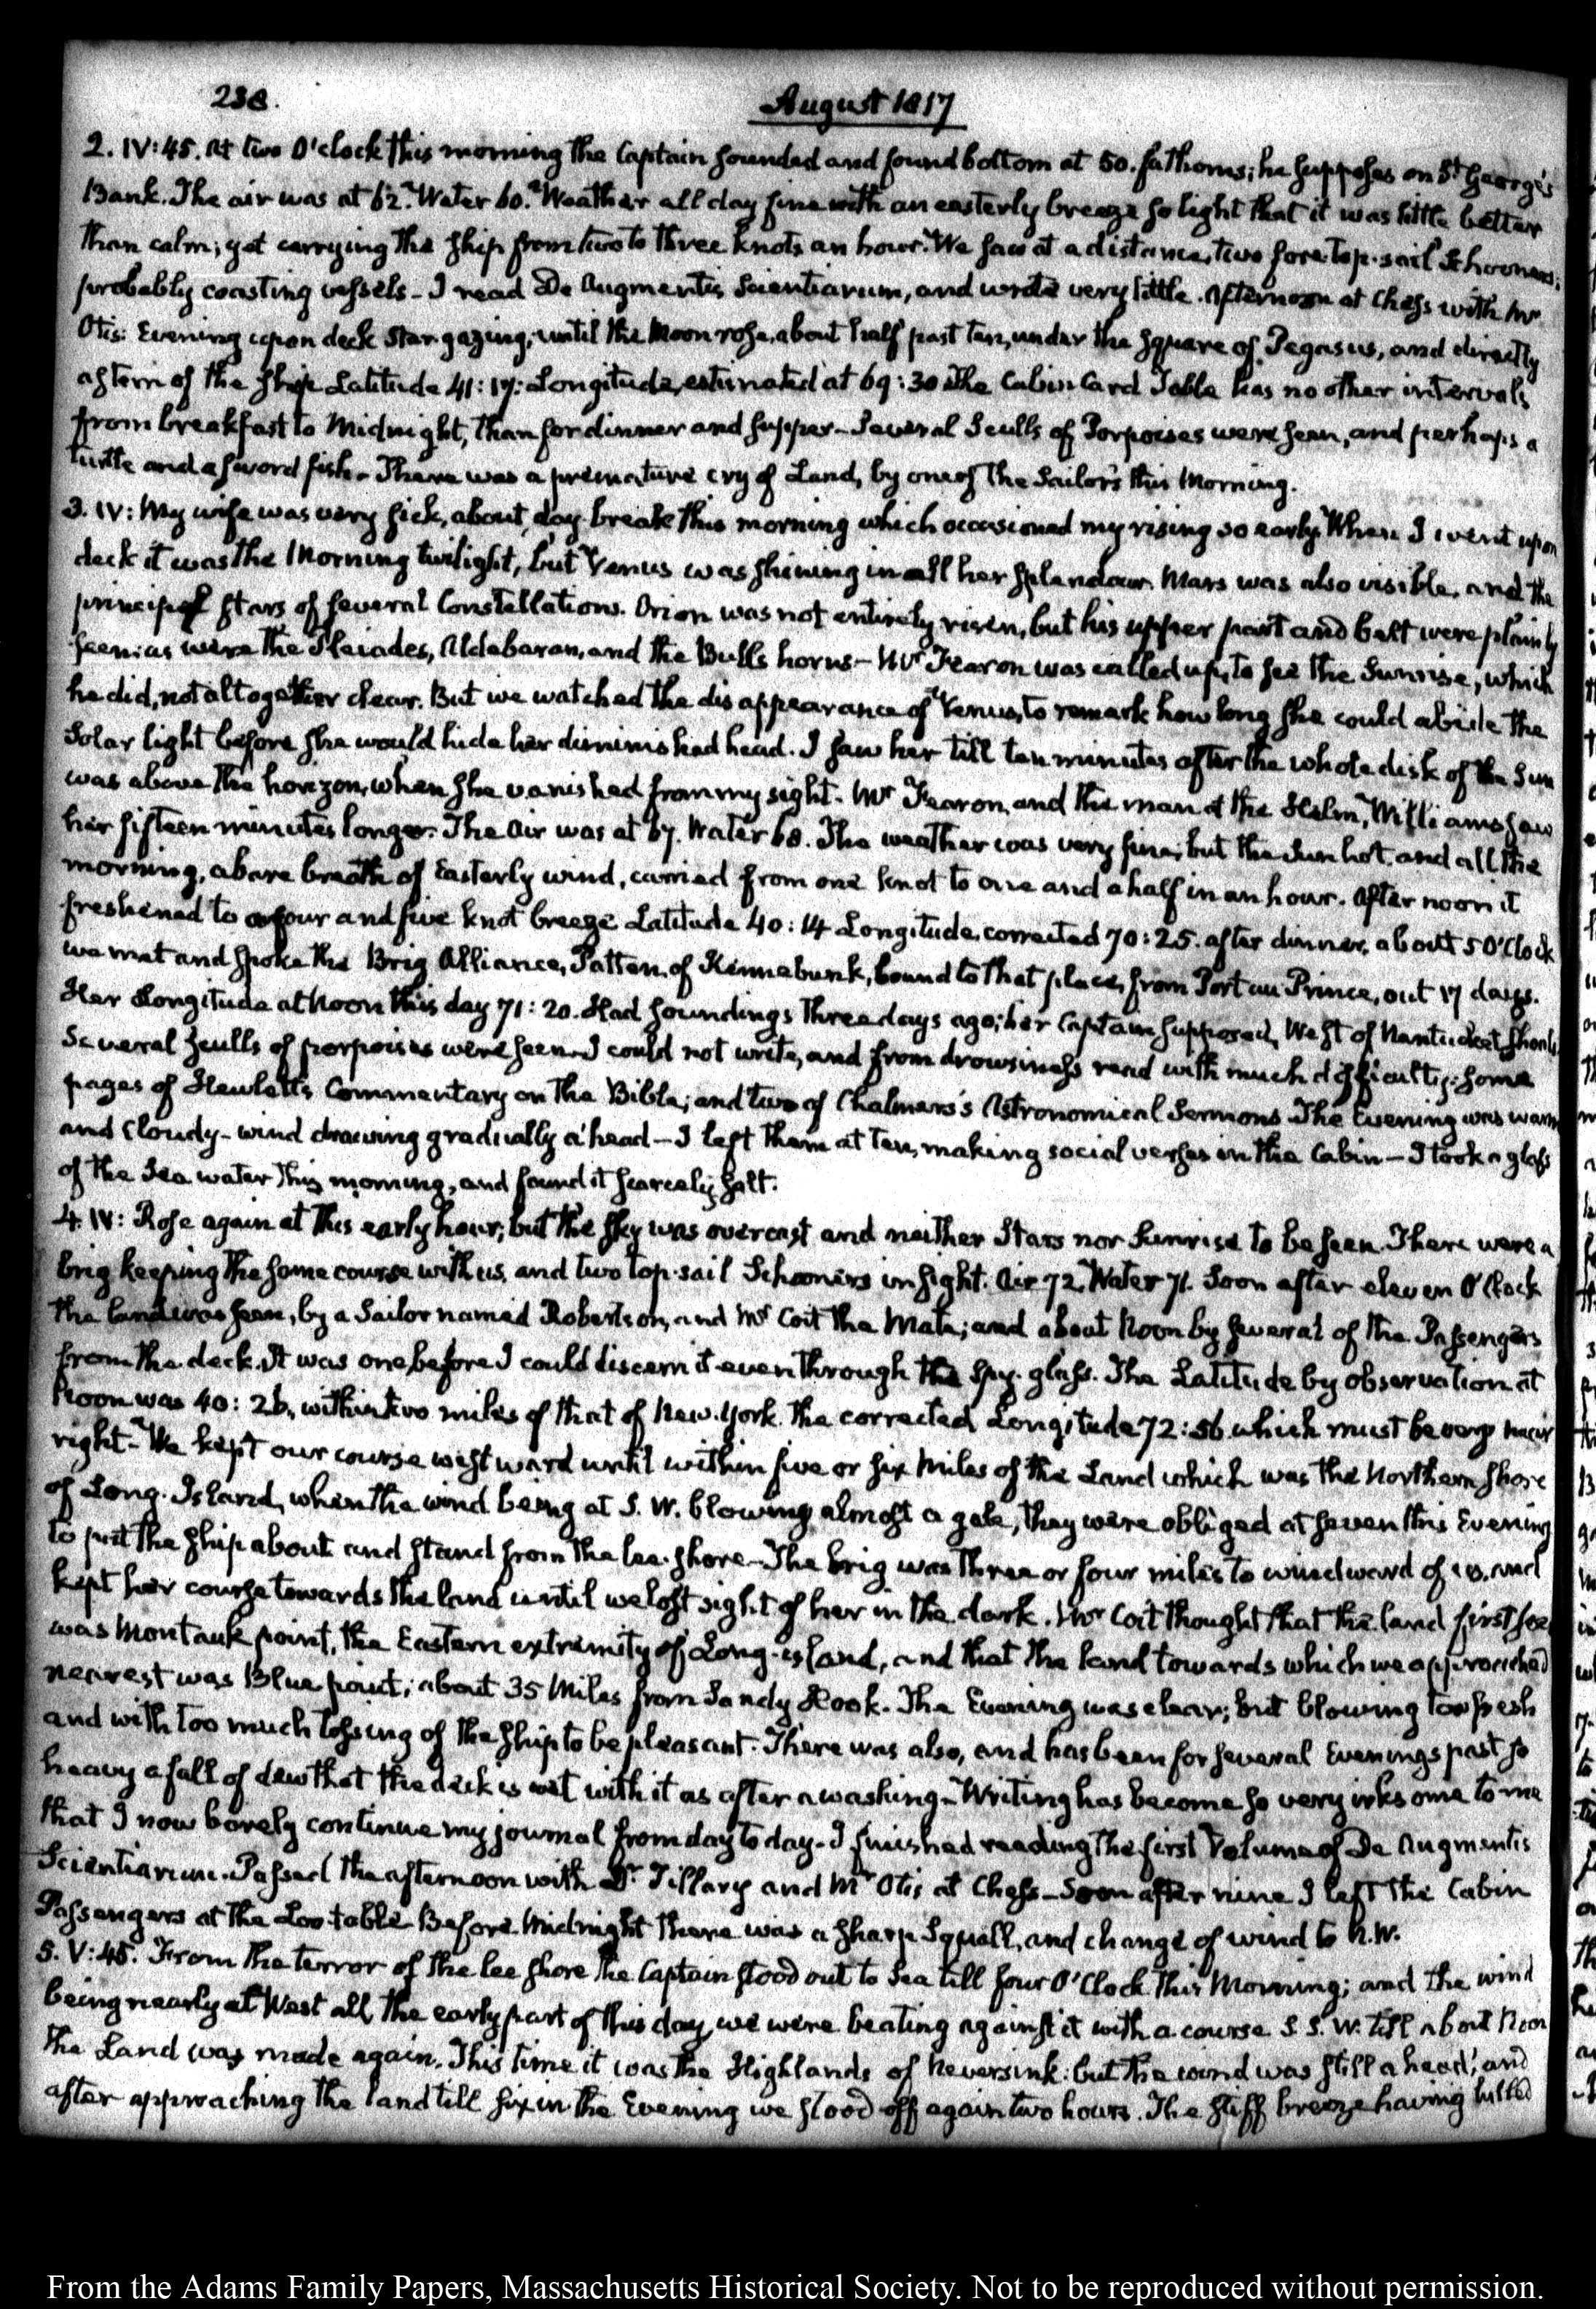 238.
August 1817
2. IV:45. At two O'Clock this morning the Captain sounded and found bottom at 50. fathoms; he supposes on St. George's
Bank. The air was at 62. Water 60. Weather all day fine with an easterly breeze so light that it was little better
than calm; yet carrying the ship from two to three knots an hour. We saw at a distance, two fore-top-sail Schooners;
probably coasting vessels— I read De Augmentis Scientiarum, and wrote very little. Afternoon at Chess with Mr
Otis: Evening upon deck Star gazing, until the Moon rose, about half past ten, under the square of Pegasus, and directly
astern of the ship. Latitude 41:17: Longitude, estimated at 69:30. The Cabin Card Table has no other intervals
from breakfast to Midnight, than for dinner and supper— Several Sculls of Porpoises were seen, and perhaps a
turtle and a sword fish— There was a premature cry of Land, by one of the Sailors this Morning.
3. IV: My wife was very sick, about day-break this morning which occasioned my rising so early. When I went upon
deck it was the Morning twilight, but Venus was shining in all her splendour. Mars was also visible, and the
principal stars of several Constellations. Orion was not entirely risen, but his upper part and belt were plainly
seen; as were the Pleiades, Aldebaran, and the Bulls horns— Mr Fearon was called up, to see the Sunrise, which
he did, not altogether clear. But we watched the disappearance of Venus, to remark how long she could abide the
Solar light before she would hide her diminished head. I saw her till ten minutes after the whole disk of the Sun
was above the horizon, when she vanished from my sight. Mr Fearon, and the man at the Helm, Williams saw
her fifteen minutes longer. The Air was at 67. Water 68. The weather was very fine, but the Sun hot, and all the
morning, a bare breath of Easterly wind, carried from one knot to one and a half in an hour. After noon it
freshened to a four and five knot breeze. Latitude 40:14 Longitude, corrected 70:25. after dinner, about 5 O'Clock
we met and spoke the Brig Alliance, Patten, of Kennebunk, bound to that place, from Port au Prince, out 17 days.
Her Longitude at Noon this day 71:20. Had soundings three days ago; her Captain supposed, West of Nantucket Shoals.
Several Sculls of porpoises were seen. I could not write, and from drowsiness read with much difficulty some
pages of Hewlett's Commentary on the Bible; and two of Chalmers's Astronomical Sermons. The Evening was warm
and Cloudy— wind drawing gradually a'head— I left them at ten, making social verses in the Cabin— I took a glass
of the Sea water this morning, and found it scarcely salt.
4. IV: Rose again at this early hour; but the sky was overcast and neither Stars nor Sunrise to be seen. There were a
brig keeping the same course with us, and two top-sail Schooners in sight. Air 72. Water 71. Soon after eleven O'Clock
the land was seen, by a Sailor named Robertson, and Mr Coit the Mate; and about Noon by several of the Passengers
from the deck. It was one before I could discern it even through the spy-glass. The Latitude by observation at
Noon was 40:26, within two miles of that of New-York. The corrected Longitude 72:56 which must be very near
right— We kept our course westward until within five or six Miles of the Land which was the Northern shore
of Long-Island, when the wind being at S.W. blowing almost a gale, they were obliged at seven this Evening
to put the ship about and stand from the lee-shore— The brig was three or four miles to windward of us, and
kept her course towards the land until we lost sight of her in the dark. Mr Coit thought that the land first seen
was Montauk point, the Eastern extremity of Long-island, and that the land towards which we approached
nearest was Blue point; about 35 Miles from Sandy Hook. The Evening was clear; but blowing too fresh
and with too much tossing of the ship to be pleasant. There was also, and has been for several Evenings past so
heavy a fall of dew that the deck is wet with it as after a washing— Writing has become so very irksome to me
that I now barely continue my journal from day to day— I finished reading the first Volume of De Augmentis
Scientiarum. Passed the afternoon with Dr Tillary and Mr Otis at Chess— Soon after nine I left the Cabin
Passengers at the Loo-table. Before Midnight there was a sharp Squall, and change of wind to N.W.
5. V:45. From the terror of the lee shore the Captain stood out to Sea till four O'Clock this Morning; and the wind
being nearly at West all the early part of this day, we were beating against it with a course S.S.W. till about Noon
the Land was made again. This time it was the Highlands of Neversink: but the wind was still a'head; and
after approaching the land till six in the Evening we stood off again two hours. The stiff breeze having lulled
From the Adams Family Papers, Massachusetts Historical Society. Not to be reproduced without permission.